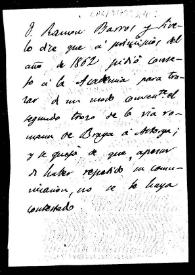 D. Ramon Barros y Sivelo dice que á principios del
año de 1862 pidió consejo á la Academia para trazar
de un modo conveniente el
segundo trozo de la via romana
de Braga á Astorga;
y se quejó de que, apesar
de haber repetido su comunicacion,
no se le haya
contestado